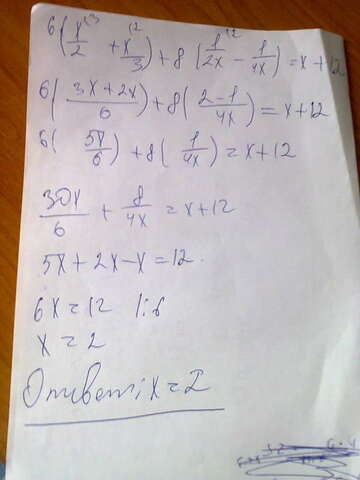 6(x^{\3}/2 + x^{\2}/3) + 8(1^{\2}/2x − 1/4x) = x + 12
6(3x+2x/6) + 8(2−1/4x) = x+12
6(5x/6) + 8(1/4x) = x+12
30x/6 + 8/4x = x+12
5x + 2x − x = 12.
6x = 12 |:6
x = 2
Ответ: x = 2